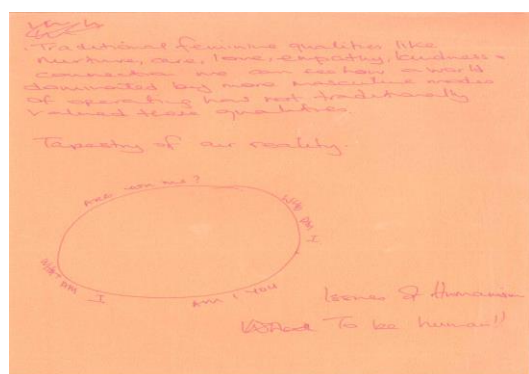 . Traditional feminine qualities like
nurture, are, love, empathy, kindness +
connection are on a world
dominated by more masculine modes
of operating has not traditionally
valued these qualities.
Tapestry of our reality.
Are you me?
Who am I
What am I
Am I you
Issues of Humanism
To be human!!